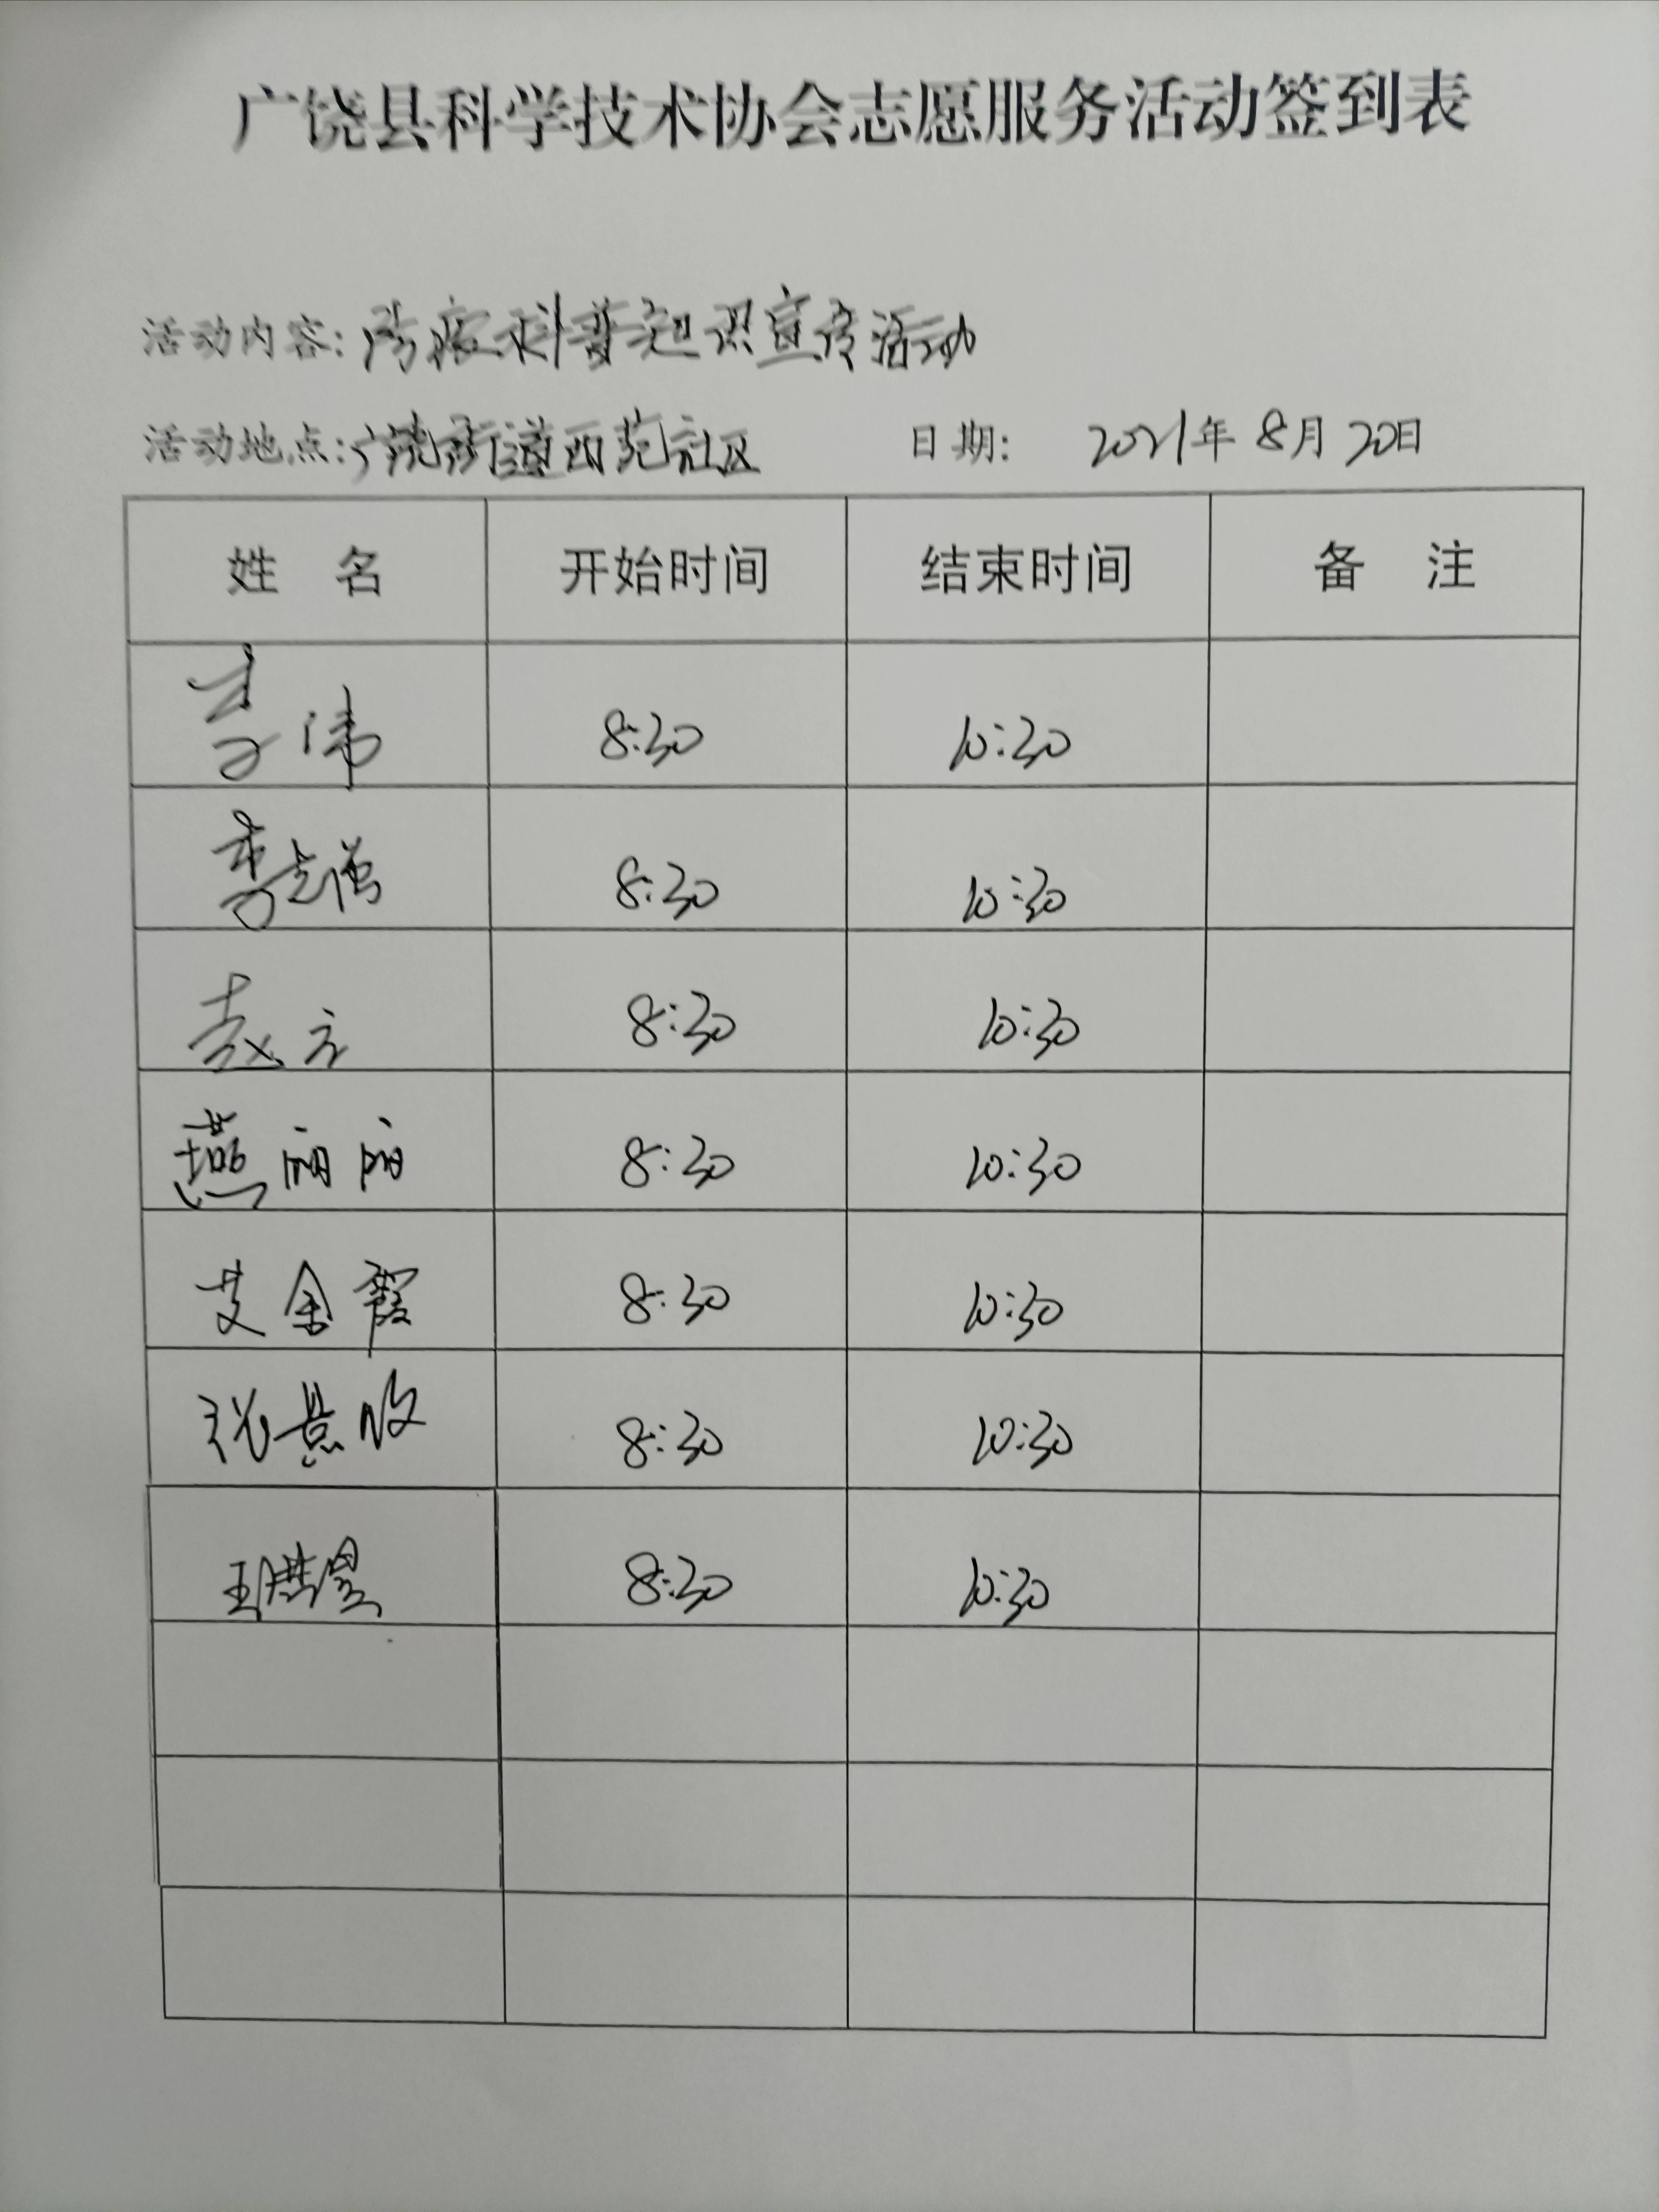 广饶县科学技术协会志愿服务活动签到表
活动内容：防疫科普知识宣传活动
活动地点：广饶街道西苑社区 日期： 2021年 8月 20日
姓 名 开始时间 结束时间 备 注
8:30 10:30
李 8:30 10:30
赵 8:30 10:30
燕丽丽 8:30 10:30
艾金霞 8:30 10:30
张景收 8:30 10:30
王 8:30 10:30